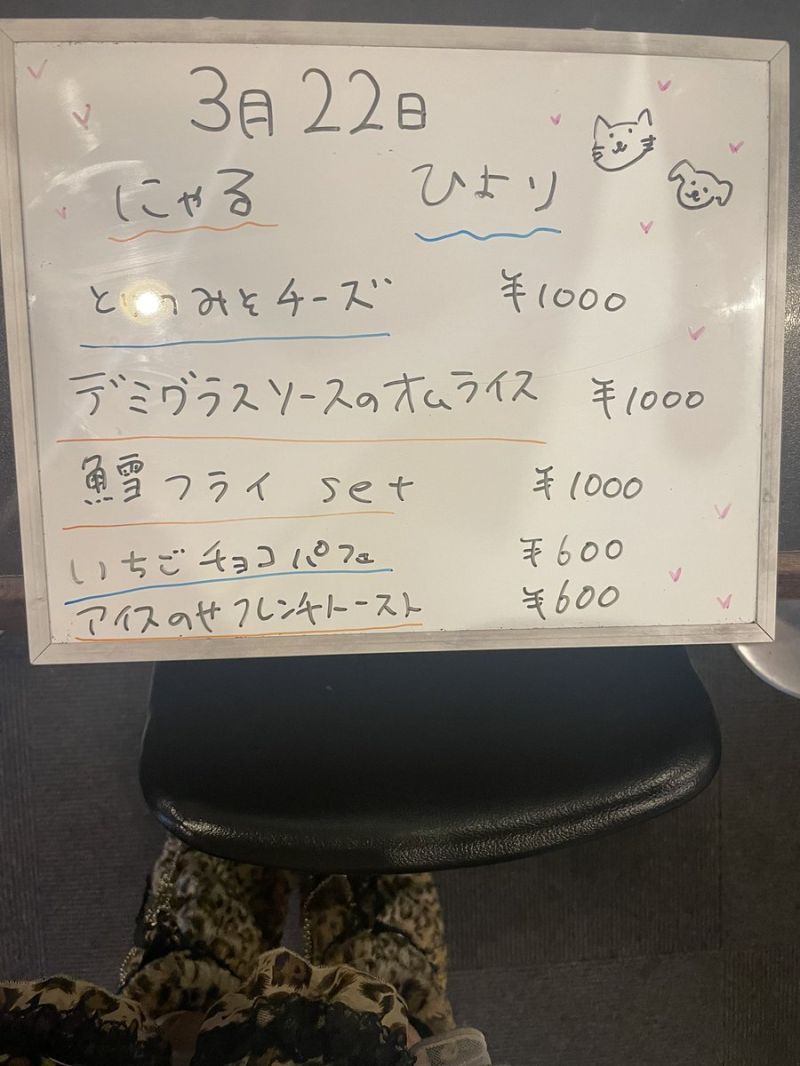 3月22日
にゃる ひより
みそチーズ ¥1000
デミグラスソースのオムライス ¥1000
鱈フライ set ¥1000
いちごチョコパフェ ¥600
アイスのせフレンチトースト ¥600